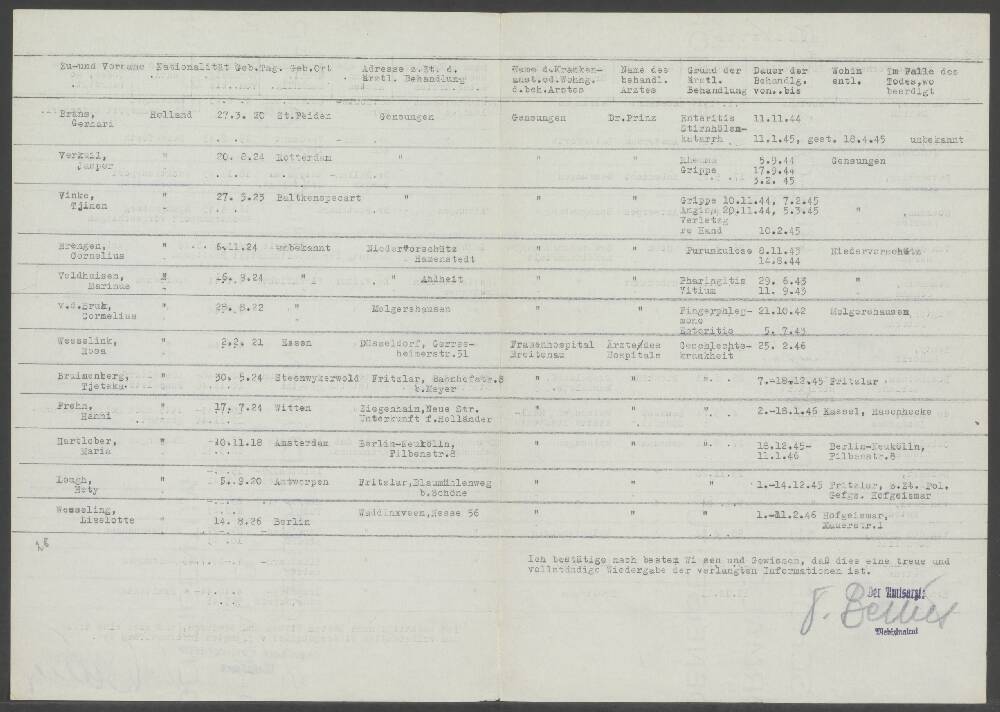 Zu-und Vorname Nationalität Geb.Tag. Geb.Ort Adresse z.Zt. d. ärztl. Behandlung Name d.Kranken-anst.od.Wohng. d.beh.Arztes Name des behandl. Arztes Grund der ärztl. Behandlung Dauer der Behandlg. von..bis Wohin entl. Im Falle des Todes,wo beerdigt
Brans, Holland 27.3. 20 St.Peiden Gensungen Gensungen Dr.Prinz Enteritis 11.11.44
Gerhard Stirnhölen-
katarrh 11.1.45, gest. 18.4.45 unbekannt
Verkuil, " 20. 8.24 Rotterdam " " " Rheuma 5.9.44 Gensungen
Jasper Grippe 17.9.44
3.2. 45
Vinke, " 27. 3.23 Bultkenspecart " " " Grippe 10.11.44, 7.2.45
Tjinen Angina 20.11.44, 5.3.45 "
Verletzg
re Hand 10.2.45
Brengen, " 6.11.24 unbekannt Niedervorschütz " " Furunkulose 8.11.43 Niedervorschütz
Cornelius Harmenstedt 14.8.44
Veldhuisen, " 16. 9.24 " " Ahlheit " " Pharingitis 29. 6.43 "
Marinus Vitium 11. 9.43
v.d.Bruk, " 29. 8.22 " Melgershausen " " Fingerphleg- 21.10.42 Melgershausen
Cornelius mone
Enteritis 5. 7.43
Wesselink, " 2.2. 21 Essen Düsseldorf, Gerres- Frauenhospital Ärzte/des Geschlechts- 25. 2.46
Rosa heimerstr.51 Breitenau Hospitals krankheit
Bruinenberg, " 30. 5.24 Steenwykerwold Fritzlar, Bahnhofstr.8 " " " 7.-18.12.45 Fritzlar
Tjetske b.Meyer
Frehn, " 17. 7.24 Witten Ziegenhain,Neue Str. " " " 2.-18.1.46 Kassel, Hasenhecke
Hanni Unterkunft f.Holländer
Hartlober, " 10.11.18 Amsterdam Berlin-Neukölln, " " " 18.12.45- Berlin-Neukölln,
Maria Filbenstr.8 11.1.46 Filbenstr.8
Lough, " 5. 9.20 Antwerpen Fritzlar,Blaumühlenweg " " " 1.-14.12.45 Fritzlar, z.Zt. Pol.
Hety b.Schöne Gefgs. Hofgeismar
Wesseling, Waddinxveen,Nesse 56 " " " 1.-11.2.46 Hofgeismar,
Liselotte " 14. 8.26 Berlin Mauerstr.1
Ich bestätige nach bestem Wi sen und Gewissen, daß dies eine treue und
vollständige Wiedergabe der verlangten Informationen ist.
Der Amtsarzt:
Medizinalrat